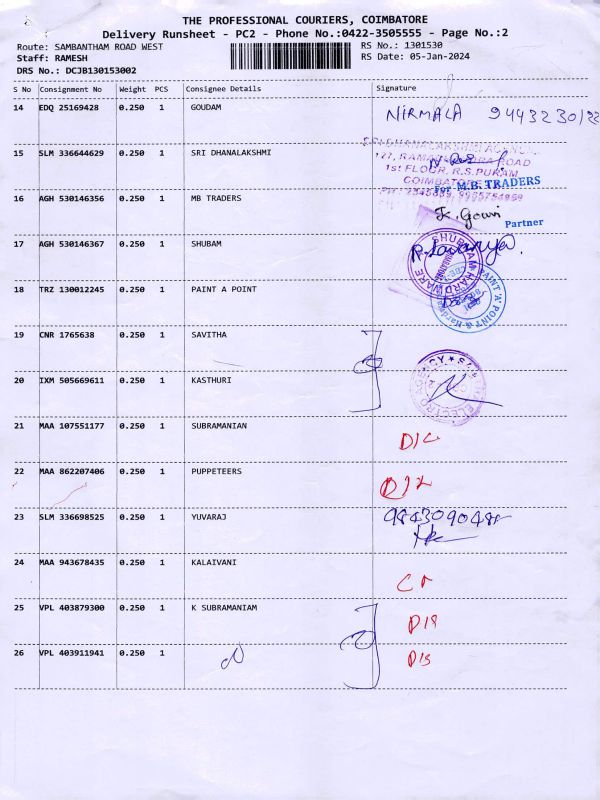 THE PROFESSIONAL COURIERS, COIMBATORE
Delivery Runsheet - PC2 - Phone No.:0422-3505555 - Page No.:2
Route: SAMBANTHAM ROAD WEST RS No.: 1301530
Staff: RAMESH RS Date: 05-Jan-2024
DRS No.: DCJB130153002
S No Consignment No Weight PCS Consignee Details Signature
14 EDQ 25169428 0.250 1 GOUDAM NIRMALA
15 SLM 336644629 0.250 1 SRI DHANALAKSHMI
ROAD
1st FLOOR, R.S.PURAM
For M.B. TRADERS
16 AGH 530146356 0.250 1 MB TRADERS
K. Gowri
Partner
17 AGH 530146367 0.250 1 SHUBAM
SHUBHAM HARDWARE
18 TRZ 130012245 0.250 1 PAINT A POINT
PAINT 'A' POINT & Hardware
19 CNR 1765638 0.250 1 SAVITHA
20 IXM 505669611 0.250 1 KASTHURI
21 MAA 107551177 0.250 1 SUBRAMANIAN
22 MAA 862207406 0.250 1 PUPPETEERS
23 SLM 336698525 0.250 1 YUVARAJ
24 MAA 943678435 0.250 1 KALAIVANI
25 VPL 403879300 0.250 1 K SUBRAMANIAM
26 VPL 403911941 0.250 1